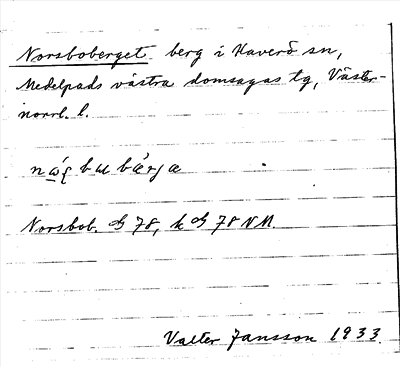 Norsboberget berg i Haverö sn,
Medelpads västra domsagas tg, Väster-
norrl. l.
bu bærjæ
Norsbob. 78, k 78 NM.
Valter Jansson 1933.